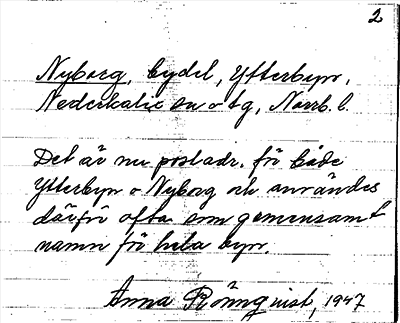 2
Nyborg, bydel, Ytterbyn,
Nederkalix sn o tg, Norrb. l.
Det är nu postadr. för både
Ytterbyn o Nyborg och användes
därför ofta som gemensamt
namn för hela byn.
Anna Rönnquist, 1947